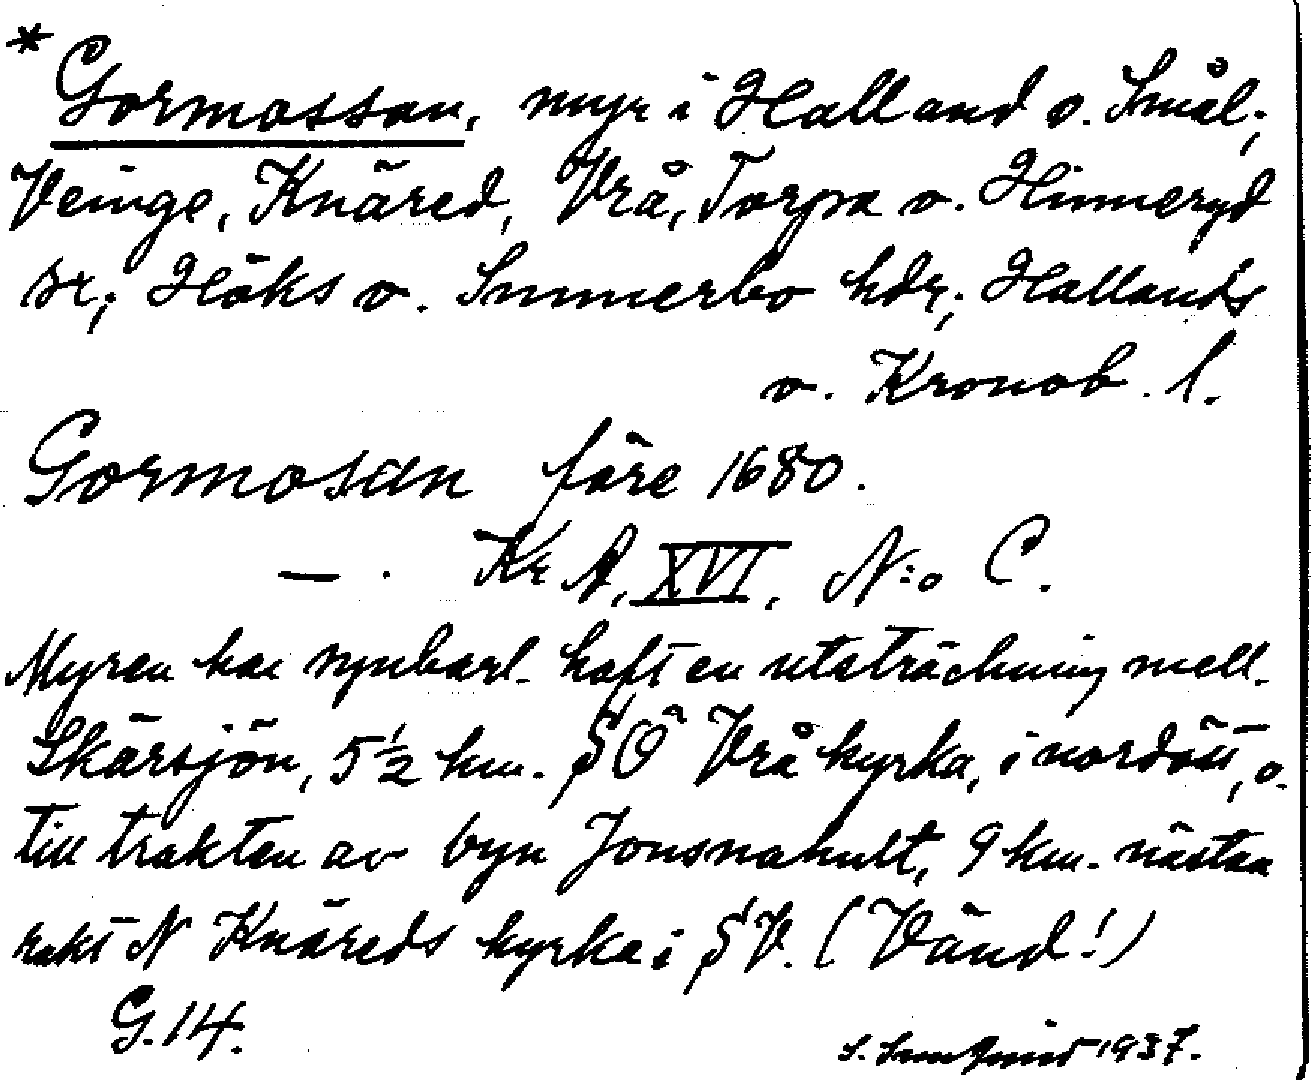 *
Gormossan, myr i Halland o. Smål.;
Veinge, Knäred, Vrå, Torpa o. Hinneryd
sr; Höks o. Sunnerbo hdr; Hallands
o. Kronob. l.
Gormosan före 1680.
— . KrA, XVI, N:o C.
Myren har uppenbarl. haft en utsträckning mell.
Skärsjön, 5½ km. SO Vrå kyrka, i nordöst, o.
till trakten av byn Jonsnahult, 9 km. nästan
rakt N Knäreds kyrka i SV. (Vänd!)
G. 14.
1937.